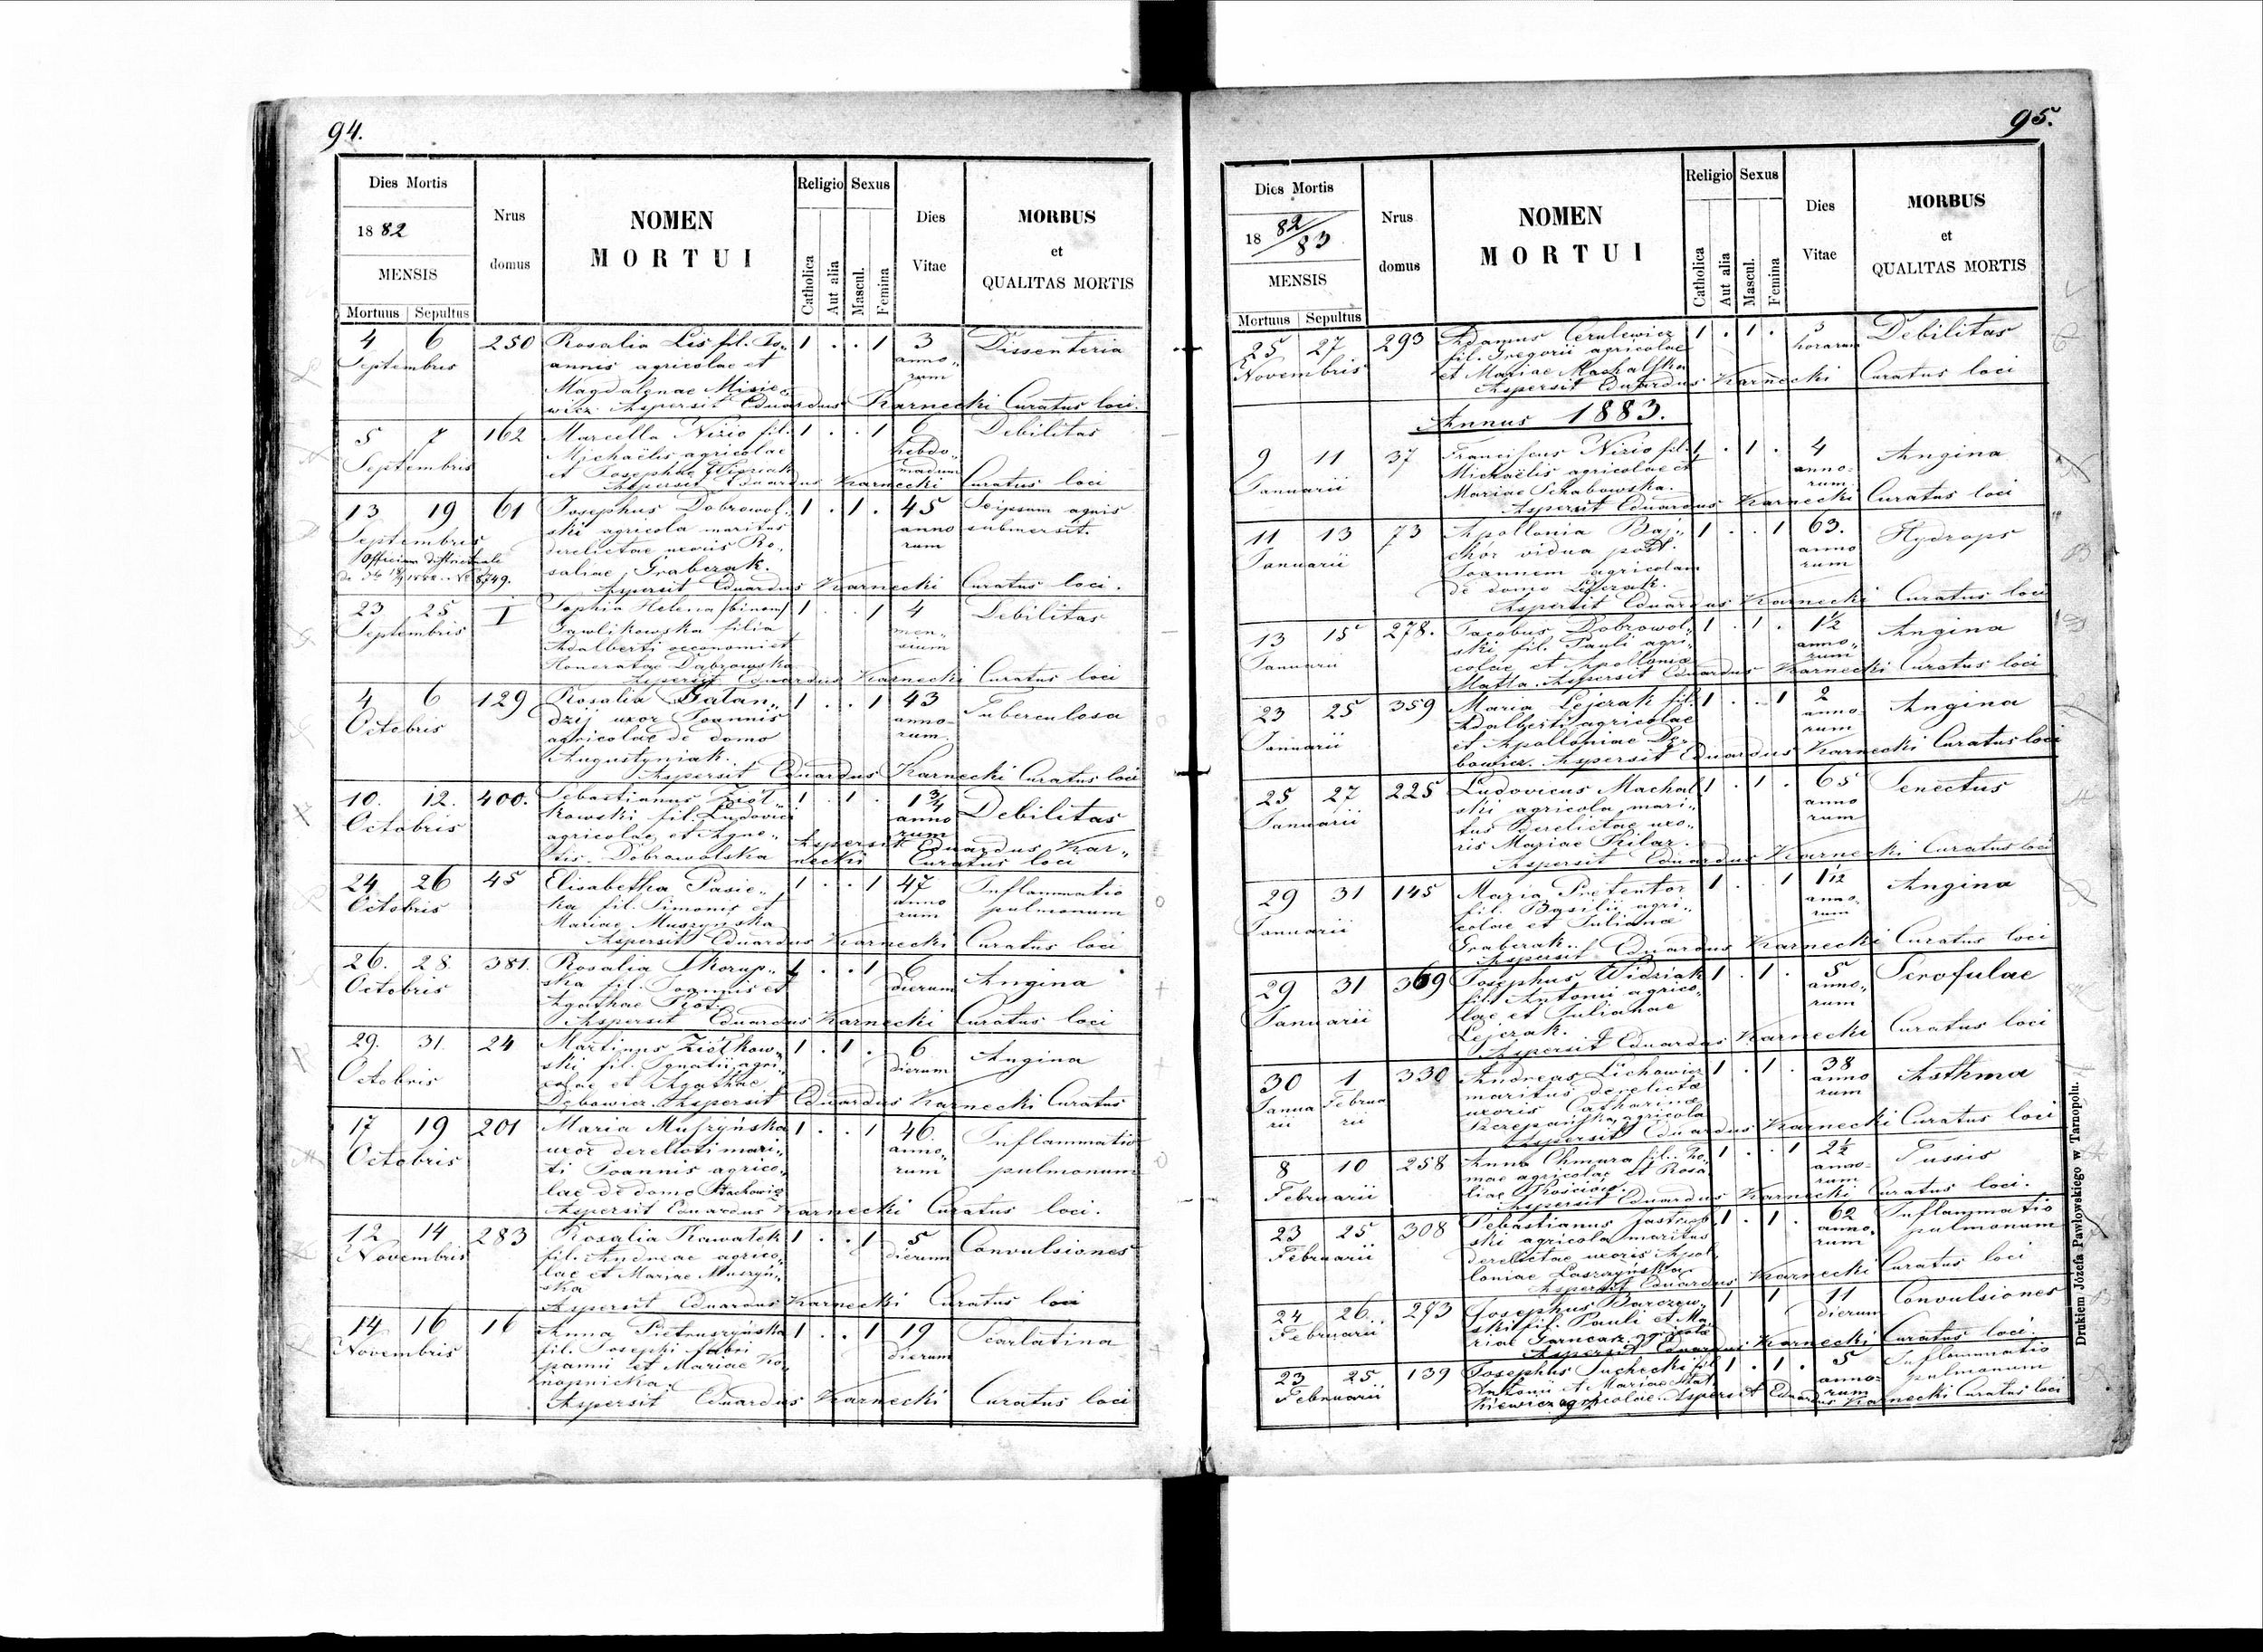 94.
Dies Mortis
1882
MENSIS
Mortuus Sepultus
Nrus domus
NOMEN
MORTUI
Religio Sexus
Catholica
Aut alia
Mascul.
Femina
Dies
Vitae
MORBUS
et
QUALITAS MORTIS
4 6 250 Rosalia Lis fil. Jo„ 1 . . 1 3 Dissenteria
Septembris annis agricolae et anno„
Magdalenae Misie„ rum
wicz. Aspersit Eduardus Karnecki Curatus loci.
5 7 162 Marcella Nizio fil. 1 . . 1 6 Debilitas
Septembris Michaëlis agricolae hebdo„
et Josephae Widziak madum
Aspersit Eduardus Karnecki Curatus loci
13 19 61 Josephus Dobrowol„ 1 . 1 . 45 Seipsum aquis
Septembris ski agricola maritus anno submersit.
Officium districtuale derelictae uxoris Ro„ rum
8749. saliae Graberak.
Aspersit Eduardus Karnecki Curatus loci.
23 25 I Sophia Helena /binom/ 1 . . 1 4 Debilitas
Septembris Gawlikowska filia men„
Adalberti oeconomi et sium
Honoratae Dąbrowska
Aspersit Eduardus Karnecki Curatus loci
4 6 129 Rosalia Gatan„ 1 . . 1 43 Tuberculosa
Octobris dzij uxor Joannis anno„
agricolae de domo rum.
Augustyniak.
Aspersit Eduardus Karnecki Curatus loci
10. 12. 400. Sebastianus Ziół„ 1 . 1 . 1 3/4 Debilitas
Octobris kowski fil. Ludovici anno
agricolae et Agne„ rum Aspersit Eduardus Kar„
tis Dobrowolska necki Curatus loci
24 26 45 Elisabetha Pasie„ 1 . . 1 47 Inflammatio
Octobris ka fil. Simonis et anno pulmonum
Mariae Muszyńska rum
Aspersit Eduardus Karnecki Curatus loci
26. 28. 381. Rosalia Skorup„ 1 . . 1 6 Angina
Octobris ska fil. Joannis et dierum
Agathae Piot.
Aspersit Eduardus Karnecki Curatus loci
29. 31. 24 Martinus Ziółkow„ 1 . 1 . 6 Angina
Octobris ski fil. Ignatii agri„ dierum
colae et Agathae
Dębowicz Aspersit Eduardus Karnecki Curatus
17 19 201 Maria Muszyńska 1 . . 1 46. Inflammatio
Octobris uxor derelicti mari„ anno„ pulmonum
ti Joannis agrico„ rum
lae de domo Stachowicz
Aspersit Eduardus Karnecki Curatus loci.
12 14 283 Rosalia Kawałek 1 . . 1 5 Convulsiones
Novembris fil. Andreae agrico„ dierum
lae et Mariae Muszyń„
ska
Aspersit Eduardus Karnecki Curatus loci
14 16 16 Anna Pietruszyńska 1 . . 1 19 Scarlatina
Novembris fil. Josephi fabri dierum
et Mariae Ko„
nopnicka.
Aspersit Eduardus Karnecki Curatus loci
95.
Dies Mortis
18 82/83
MENSIS
Mortuus Sepultus
Nrus domus
NOMEN
MORTUI
Religio Sexus
Catholica
Aut alia
Mascul.
Femina
Dies
Vitae
MORBUS
et
QUALITAS MORTIS
25 27 293 Adamus Cerulewicz 1 . 1 . 3 Debilitas
Novembris fil. Gregorii agricolae horarum
et Mariae Machalska
Aspersit Eduardus Karnecki Curatus loci
Annus 1883.
9 11 37 Franciscus Nizio fil. 1 . 1 . 4 Angina
Januarii Michaëlis agricolae et anno„
Mariae Schabowska. rum
Aspersit Eduardus Karnecki Curatus loci
11 13 73 Apollonia Baj„ 1 . . 1 63. Hydrops
Januarii chór vidua post. anno
Joannem agricolam rum
de domo Lejerak.
Aspersit Eduardus Karnecki Curatus loci
13 15 278. Jacobus Dobrowol„ 1 . 1 . 1 1/2 Angina
Januarii ski fil. Pauli agri„ anno„
colae et Apolloniae rum
Matla. Aspersit Eduardus Karnecki Curatus loci
23 25 359 Maria Lejczak fil. 1 . . 1 2 Angina
Januarii Adalberti agricolae anno
et Apolloniae Dę„ rum
bowicz. Aspersit Eduardus Karnecki Curatus loci
25 27 225 Ludovicus Machal„ 1 . 1 . 65 Senectus
Januarii ski agricola mari„ anno
tus derelictae uxo„ rum
ris Mariae Pilar.
Aspersit Eduardus Karnecki Curatus loci
29 31 145 Maria Pretentor 1 . . 1 1 1/2 Angina
Januarii fil. Basilii agri„ anno„
colae et Julianae rum
Graberak.
Aspersit Eduardus Karnecki Curatus loci
29 31 369 Josephus Widziak 1 . 1 . 5 Scrofulae
Januarii fil. Antonii agrico„ anno„
lae et Julianae rum
Lejczak.
Aspersit Eduardus Karnecki Curatus loci
30 1 330 Andreas Lichowicz 1 . 1 . 38 Asthma
Janua Februa maritus derelictae anno
rii rii uxoris Catharinae rum
Szczepańska agricola
Aspersit Eduardus Karnecki Curatus loci
8 10 258 Anna Chmura fil. Tho„ 1 . . 1 2 1/2 Tussis
Februarii mae agricolae et Rosa„ anno„
liae Kościów. rum
Aspersit Eduardus Karnecki Curatus loci.
23 25 308 Sebastianus Jastrzęb„ 1 . 1 . 62 Inflammatio
Februarii ski agricola maritus anno„ pulmonum
derelictae uxoris Apol„ rum
loniae Laszczyńska
Aspersit Eduardus Karnecki Curatus loci
24 26. 273 Josephus Barczew„ 1 1 11 Convulsiones
Februarii ski fil. Pauli et Ma„ dierum
riae Garncarz agricolae
Aspersit Eduardus Karnecki Curatus loci.
23 25 139 Josephus Suchecki fil. 1 . 1 . 5 Inflammatio
Februarii Antonii et Mariae anno„ pulmonum
agricolae. Aspersit Eduardus rum Karnecki Curatus loci
Drukiem Józefa Pawłowskiego w Tarnopolu.